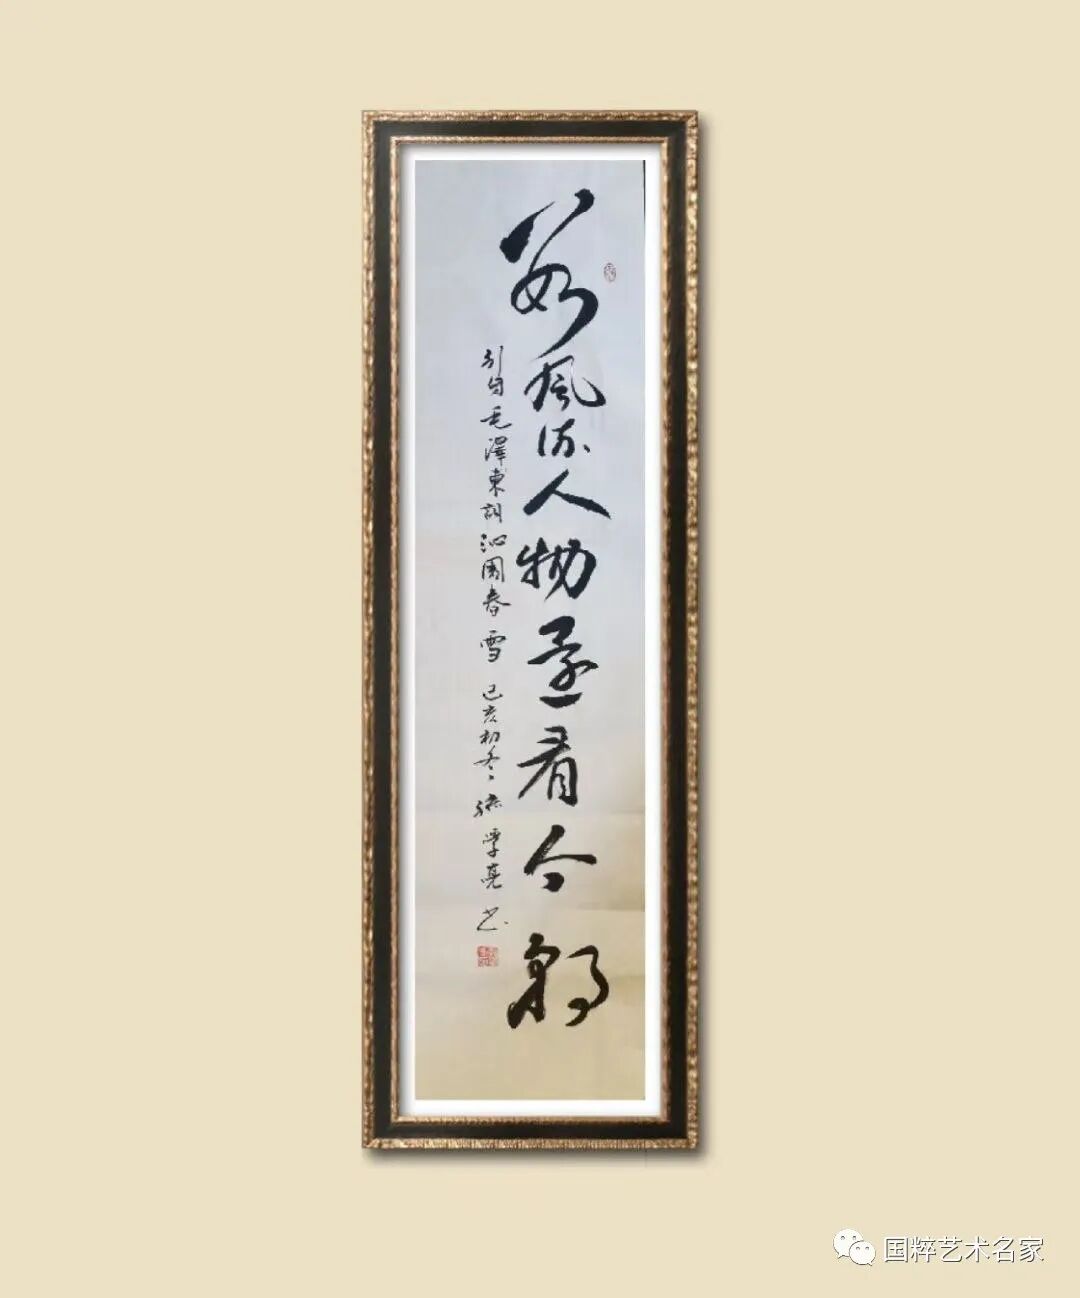 数风流人物还看今朝
引自毛澤東詞沁園春雪 己亥初冬 張学亮书
国粹艺术名家